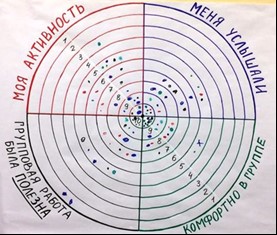 МОЯ АКТИВНОСТЬ
МЕНЯ УСЛЫШАЛИ
1 2 3 4 5 6 7 8 9
ГРУППОВАЯ РАБОТА
БЫЛА ПОЛЕЗНА
КОМФОРТНО В ГРУППЕ
9 8 7 6 5 4 3 2 1